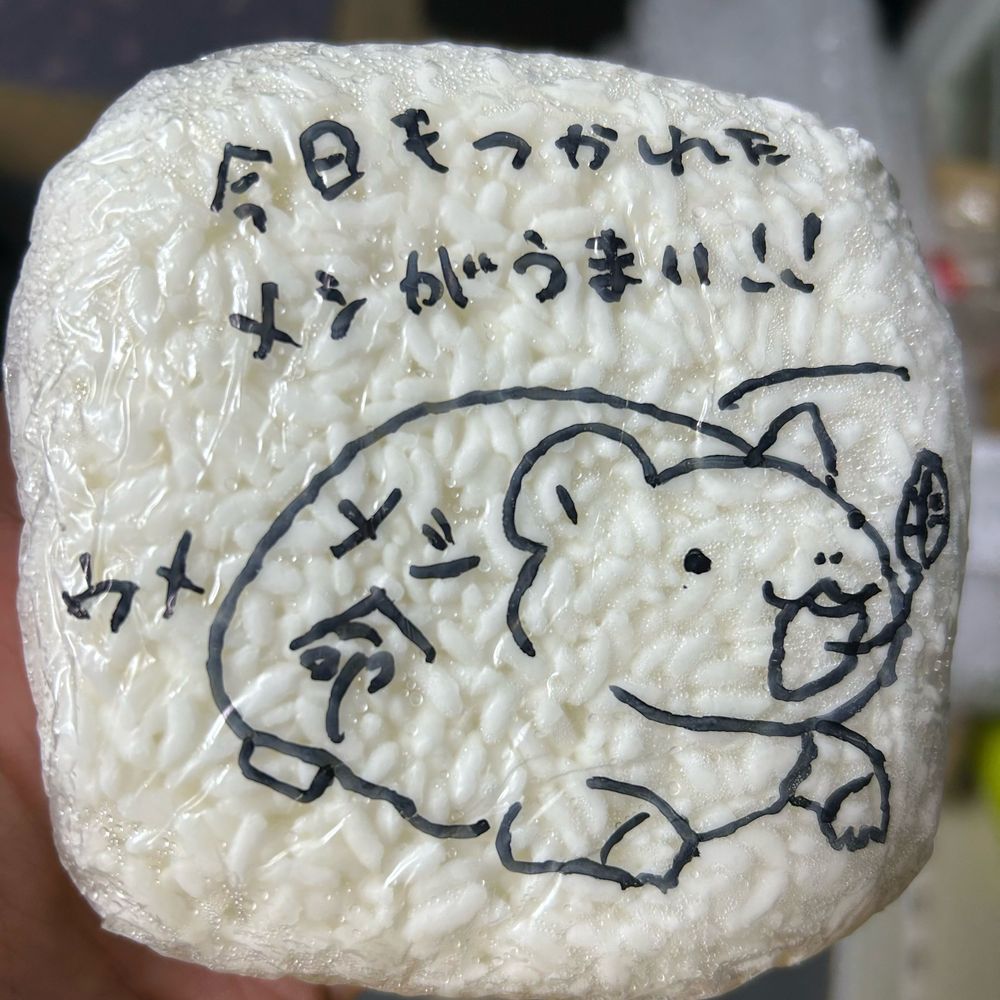 今日もつかれた
メシがうまい!!
ウメ
メシ
命